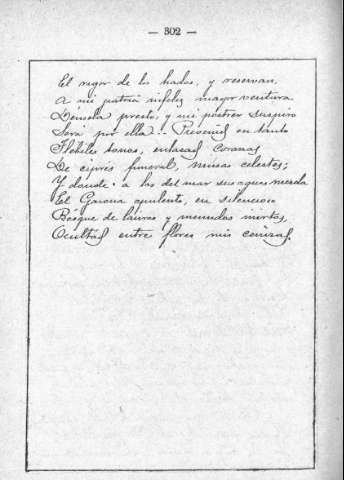 — 302 —
El rigor de los hados, y reservan
A mi patria infeliz mayor ventura.
Dénsela presto, y mi postrer suspiro
Será por ella... Prevenid en tanto
Flébiles tonos, enlazad coronas
De ciprés funeral, musas celestes;
Y donde á las del mar sus aguas mezcla
El Garona opulento, en silencioso
Bosque de lauros y menudos mirtos,
Ocultad entre flores mis cenizas.